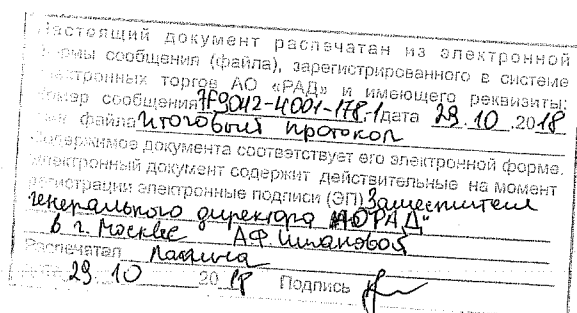 Настоящий документ распечатан из электронной
формы сообщения (файла), зарегистрированного в системе
электронных торгов АО «РАД» и имеющего реквизиты:
Номер сообщения 7F9042-4001-178-1 дата 29.10.2018
Имя файла Итоговый протокол
Содержимое документа соответствует его электронной форме.
Электронный документ содержит действительные на момент
регистрации электронные подписи (ЭП) Заместителя
генерального директора АО "РАД"
в г. Москве А.Ф. Шпановой
Распечатал
Дата 29.10 2018 Подпись